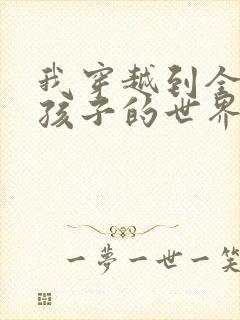 我穿越到全
孩子的世界
一夢一世一笑